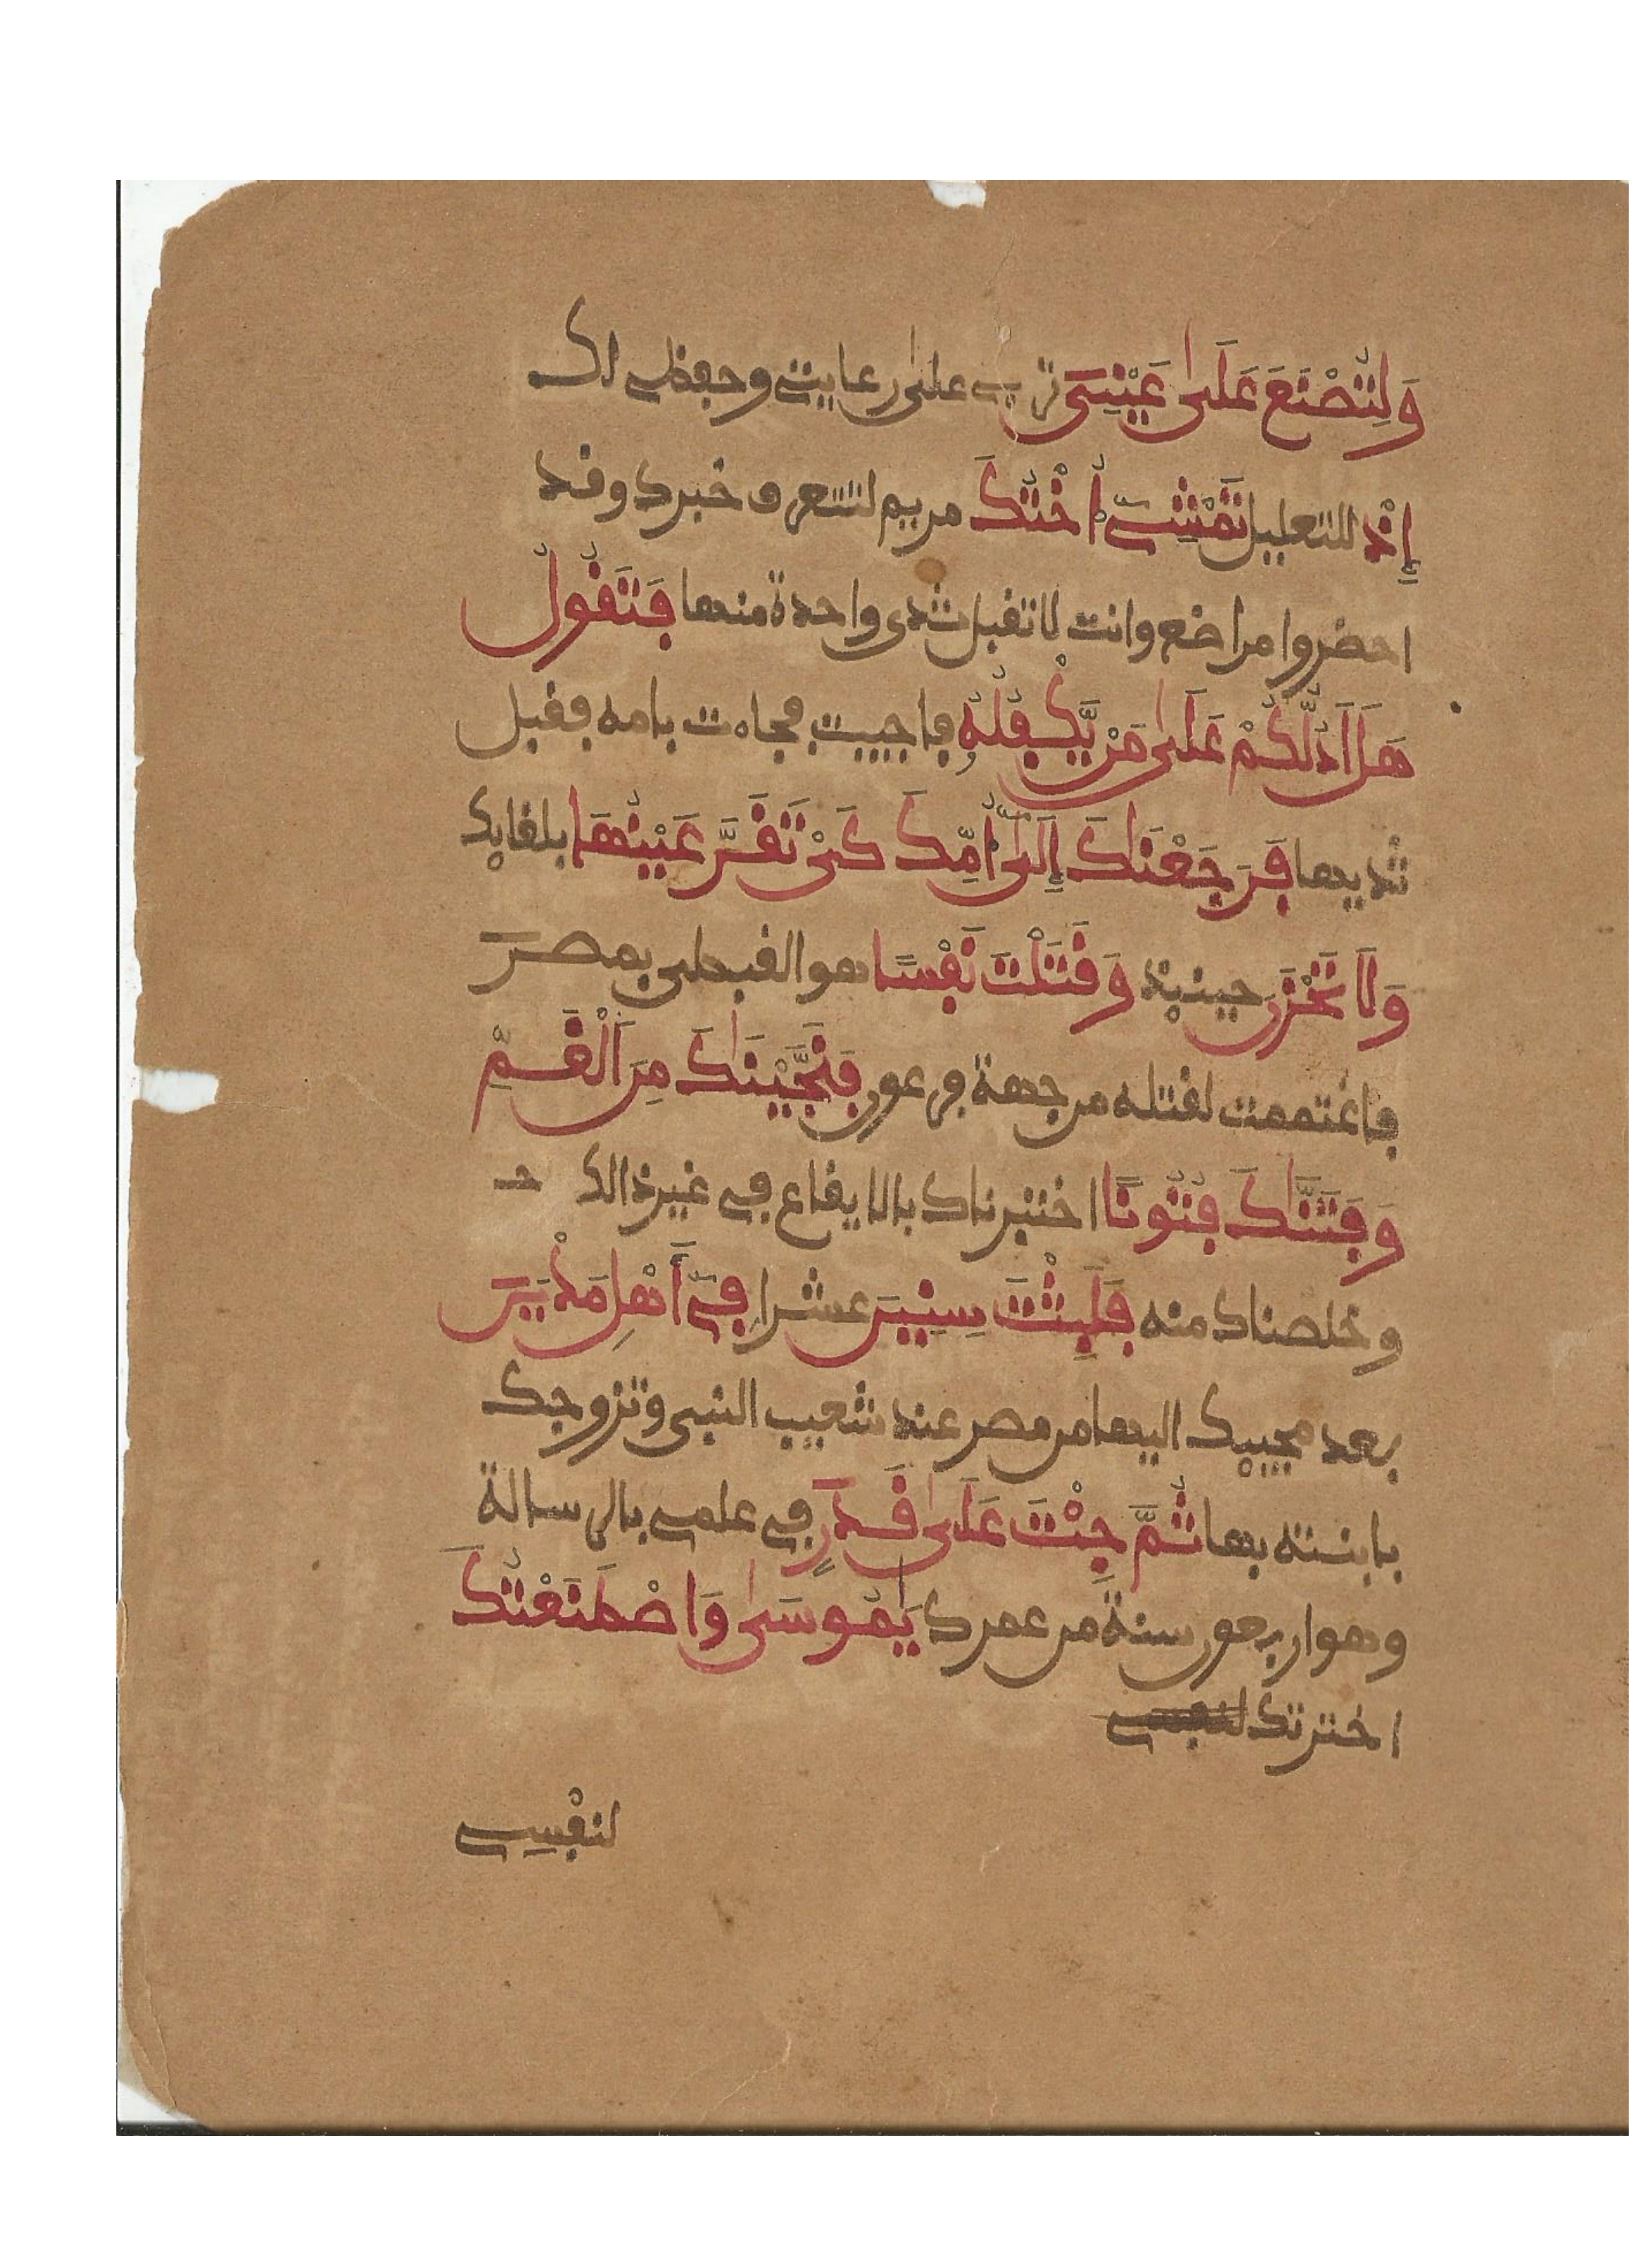 وَلِتُصْنَعَ عَلَىٰ عَيْنِىَ تربى علىٰ رعايتى وحفظى لك
إِذْ للتعليل تَمْشِىٓ أُخْتُكَ مريم لتتعرف خبرك وقد
احضروا مراضع وانت لا تقبل ثدى واحدة منها فَتَقُولُ
هَلَ اَدُلُّكُمْ عَلَىٰ مَنْ يَّكْفُلُهُۥ فاجيبت فجاءت بامه فقبل
ثديها فَرَجَعْنَٰكَ إِلَىٰٓ أُمِّكَ كَىْ تَقَرَّ عَيْنُهَا بلقايك
وَلَا تَحْزَنَ حينيذ وَقَتَلْتَ نَفْسًا هو القبطى بمصر
فاغتممت لقتله من جهة فرعون فَنَجَّيْنَٰكَ مِنَ اَلْغَمِّ
وَفَتَنَّٰكَ فُتُونًا اختبرناك بالايقاع في غير ذالك
وخلصناك منه فَلَبِثْتَ سِنِينَ عشرا فِىٓ أَهْلِ مَدْيَنَ
بعد مجييك اليها من مصر عند شعيب النبى وتزوجك
بابنته بها ثُمَّ جِئْتَ عَلَىٰ قَدَرٍ في علمى بالرسالة
وهو اربعون سنةً من عمرك يَٰمُوسَىٰ وَاصْطَنَعْتُكَ
اخترتك لنفسى
لنفْسِى